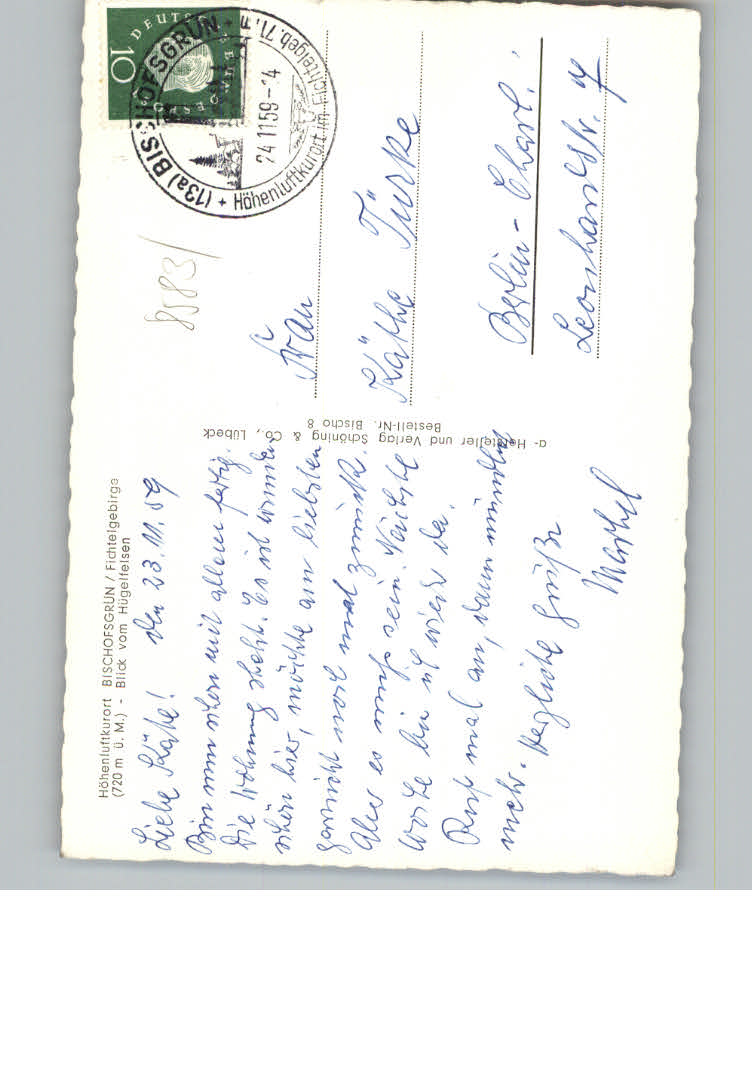 Höhenluftkurort BISCHOFSGRÜN / Fichtelgebirge
(720 m ü. M.) - Blick vom Hügelfelsen
den 23.11.59
Liebe Käthe!
Bin nun schon mit allem fertig.
Die Wohnung steht. Es ist wunder
schön hier, möchte am liebsten
garnicht noch mal zurück.
Aber es muß sein. Nächste
Woche bin ich wieder da.
Ruf mal an, dann mündlich
mehr. Herzliche Grüße
α- Hersteller und Verlag Schöning & Co., Lübeck
Bestell-Nr. Bischo 8
DEUTSCHE BUNDESPOST
10
(13a) BISCHOFSGRÜN
24.11.59-14
Höhenluftkurort im Fichtelgeb.
8583
Frau
Käthe Türke
Berlin-Charl.
Leonhardstr.